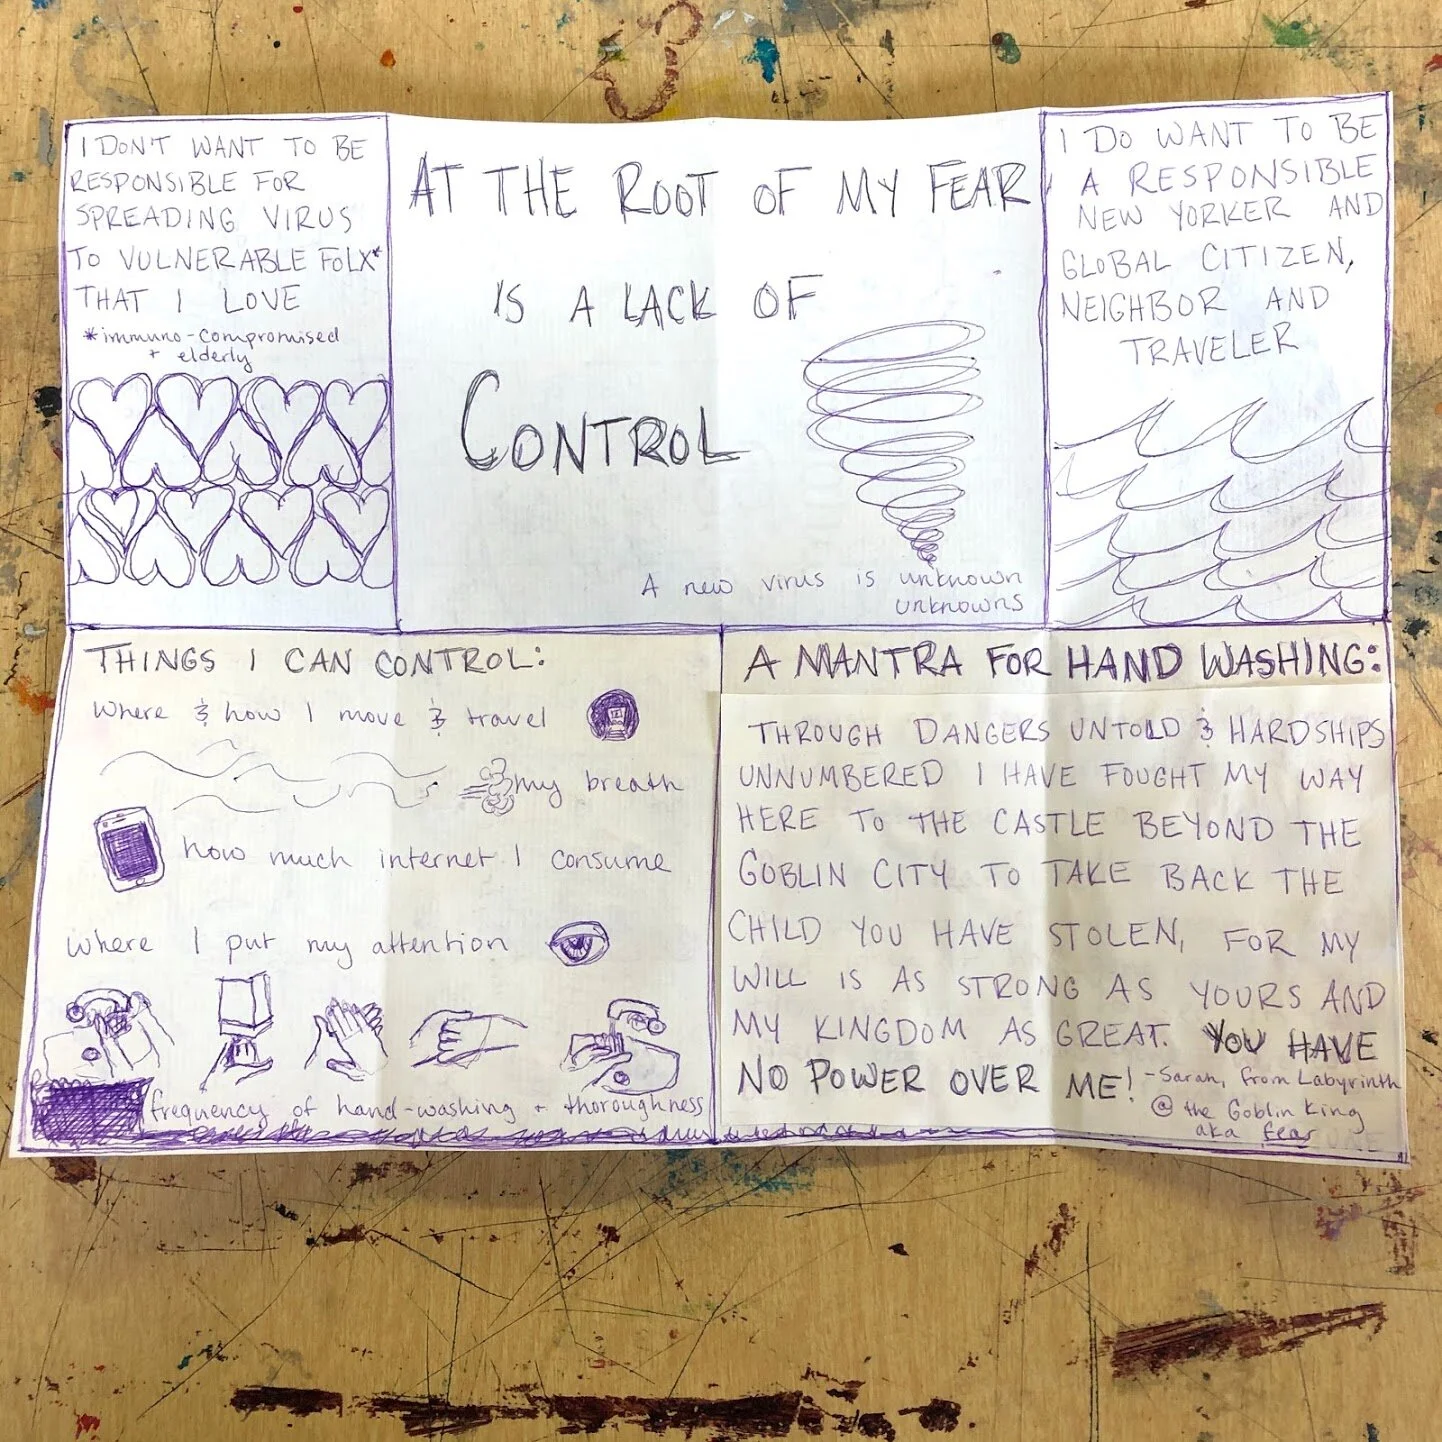 I DON'T WANT TO BE
RESPONSIBLE FOR
SPREADING VIRUS
TO VULNERABLE FOLX*
THAT I LOVE
*immuno-compromised
+ elderly
AT THE ROOT OF MY FEAR
IS A LACK OF
CONTROL
A new virus is unknown
unknowns
I DO WANT TO BE
A RESPONSIBLE
NEW YORKER AND
GLOBAL CITIZEN,
NEIGHBOR AND
TRAVELER
THINGS I CAN CONTROL:
where & how I move & travel
my breath
how much internet I consume
where I put my attention
frequency of hand-washing + thoroughness
A MANTRA FOR HAND WASHING:
THROUGH DANGERS UNTOLD & HARDSHIPS
UNNUMBERED I HAVE FOUGHT MY WAY
HERE TO THE CASTLE BEYOND THE
GOBLIN CITY TO TAKE BACK THE
CHILD YOU HAVE STOLEN, FOR MY
WILL IS AS STRONG AS YOURS AND
MY KINGDOM AS GREAT. YOU HAVE
NO POWER OVER ME! -Sarah, from Labyrinth
@ the Goblin King
aka fear